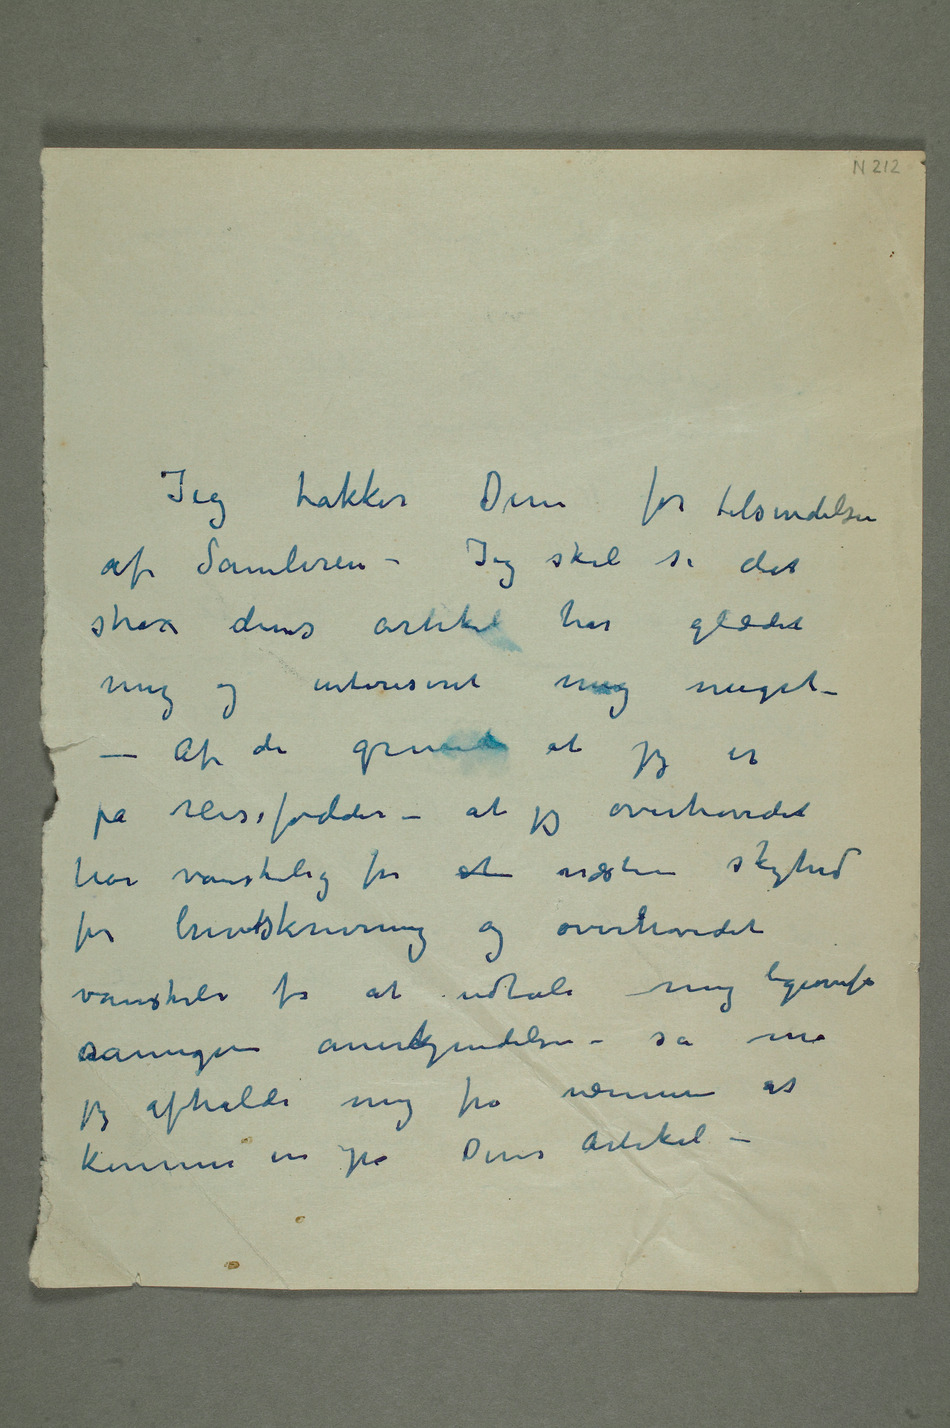 N 212
Jeg takker Dem for tilsendelsen
af Samleren – Jeg skal si det
strax deres artikel har glædet
mig og interesseret mig meget –
— Af de grunde at jeg er
på reisefødder – at jeg overhovedet
har vanskelig for at næsten skyhed
for brevskrivning og overhovedet
vanskeli for at udtale mig ligeoverfor
anerkjendelse – så må
jeg afholde mig fra nærmere at
komme in på Deres Artikel –